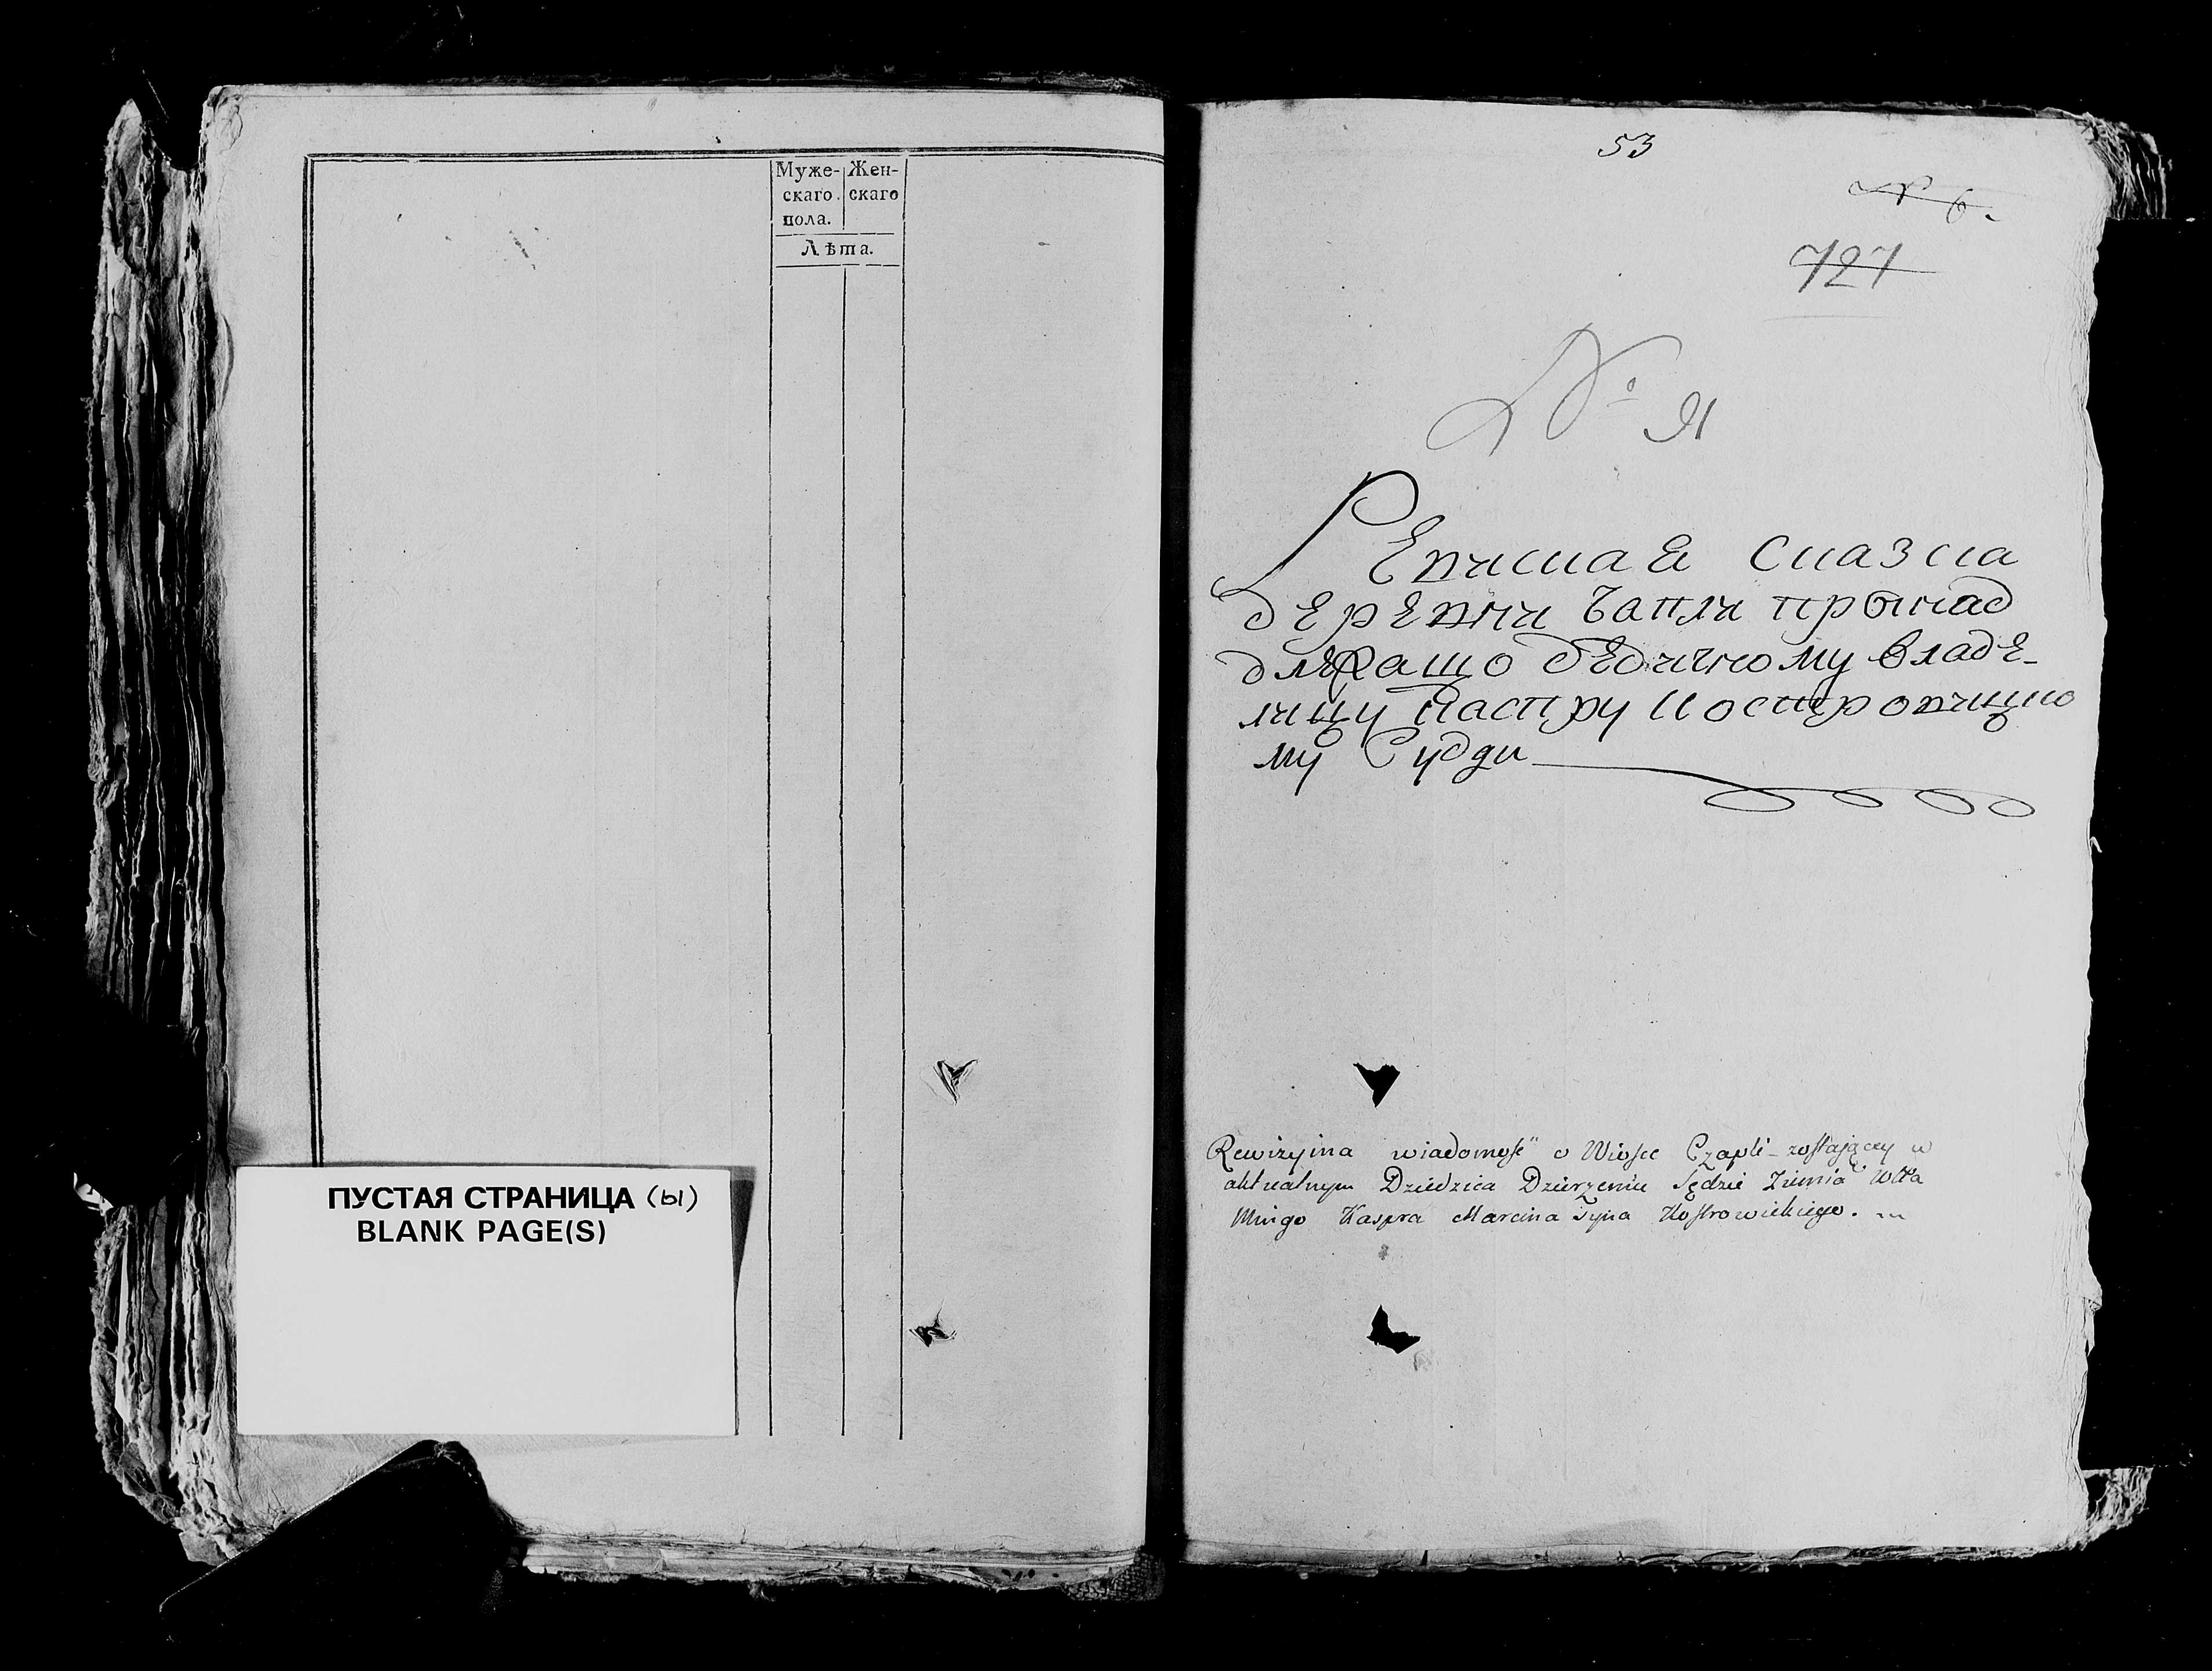 Муже- Жен-
скаго скаго
пола.
Лѣта.
ПУСТАЯ СТРАНИЦА (Ы)
BLANK PAGE(S)
53
№ 6.
727
№ 91
Ревиская сказка
деревни Чапли принад
длежащо дедичному владе-
лицу Каспру Костровицко
му Судди
Rewizyina wiadomość o Wiosce Czapli zostaiącey w
aktualnym Dziedzica Dzierzeniu Sędzie Ziemia
Kaspra Marcina syna Kostrowickiego.